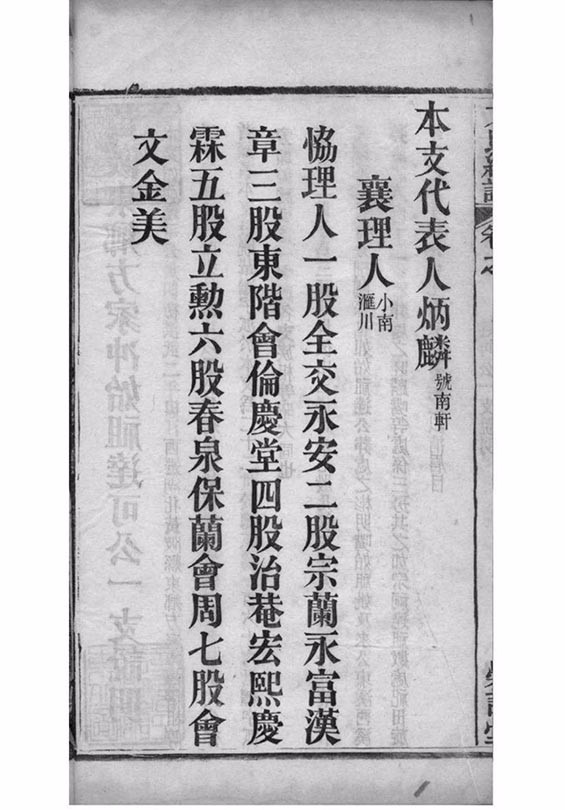 本支代表人炳麟號南軒
襄理人小南滙川
恊理人一股全交永安二股宗蘭永富漢
章三股東階會倫慶堂四股治菴宏熙慶
霖五股立勲六股春泉保蘭會周七股會
文金美